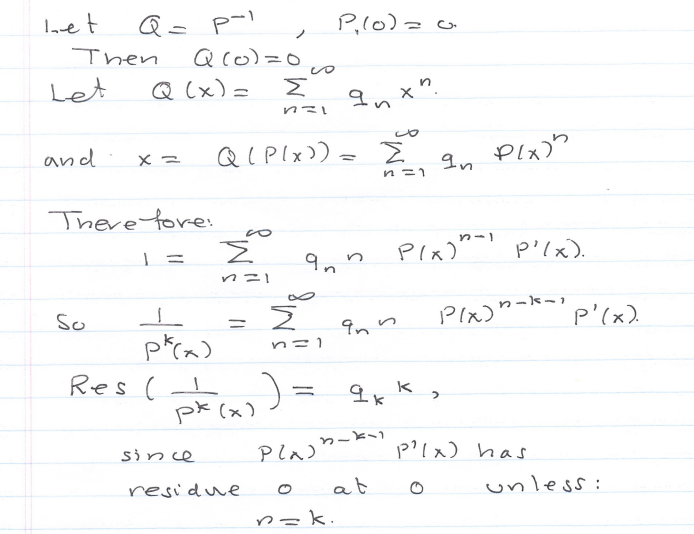 Let Q = P⁻¹ , P(0) = 0
Then Q(0)=0
Let Q(x) = ∑_{n=1}^{∞} qₙ xⁿ.
and x = Q(P(x)) = ∑_{n=1}^{∞} qₙ P(x)ⁿ
Therefore:
1 = ∑_{n=1}^{∞} qₙ n P(x)^{n-1} P'(x).
So 1/P^k(x) = ∑_{n=1}^{∞} qₙ n P(x)^{n-k-1} P'(x).
Res ( 1/P^k(x) ) = q_k k ,
since P(x)^{n-k-1} P'(x) has
residue 0 at 0 unless:
n = k.